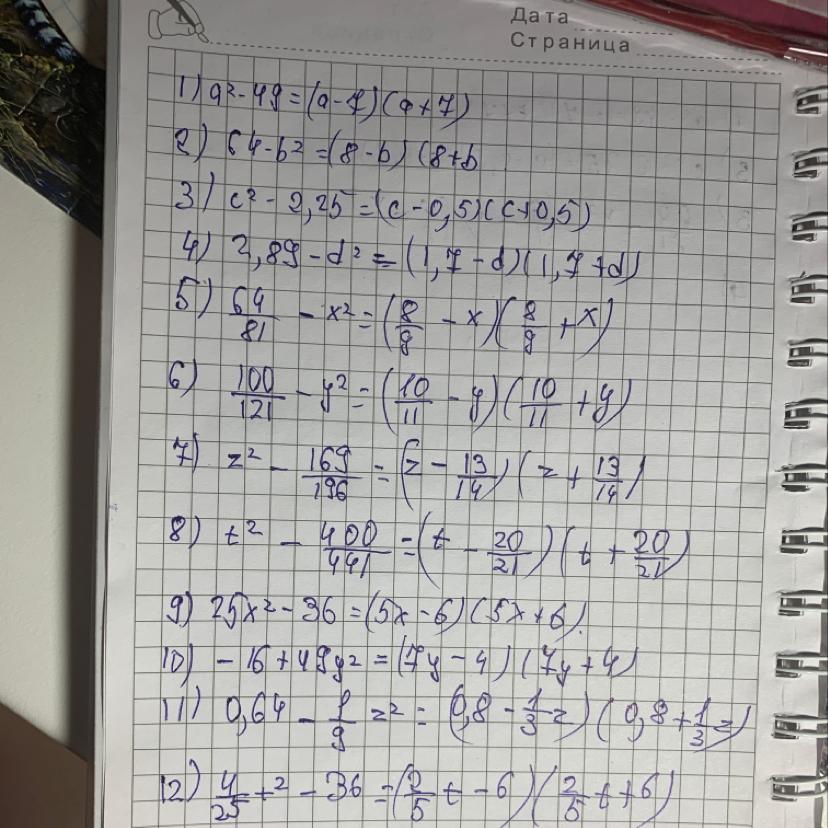 Дата
Страница
1) a² - 49 = (a - 7)(a + 7)
2) 64 - b² = (8 - b)(8 + b
3) c² - 2,25 = (c - 0,5)(c + 0,5)
4) 2,89 - d² = (1,7 - d)(1,7 + d)
5) 64/81 - x² = (8/9 - x)(8/9 + x)
6) 100/121 - y² = (10/11 - y)(10/11 + y)
7) z² - 169/196 = (z - 13/14)(z + 13/14)
8) t² - 400/441 = (t - 20/21)(t + 20/21)
9) 25x² - 36 = (5x - 6)(5x + 6).
10) - 16 + 49y² = (7y - 4)(7y + 4)
11) 0,64 - 1/9 z² = (0,8 - 1/3 z)(0,8 + 1/3 z)
12) 4/25 t² - 36 = (2/5 t - 6)(2/5 t + 6)